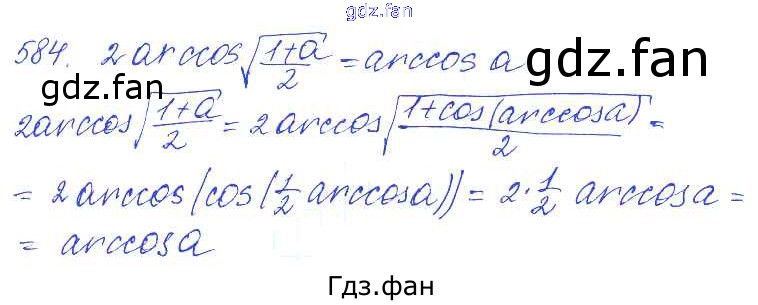 gdz.fan
584. 2arccos√((1+a)/2) = arccos a
gdz.fan
gdz.fan
2arccos√((1+a)/2) = 2arccos√((1+cos(arccosa))/2) =
= 2arccos(cos(1/2 arccosa)) = 2·1/2 arccosa =
= arccosa
Гдз.фан